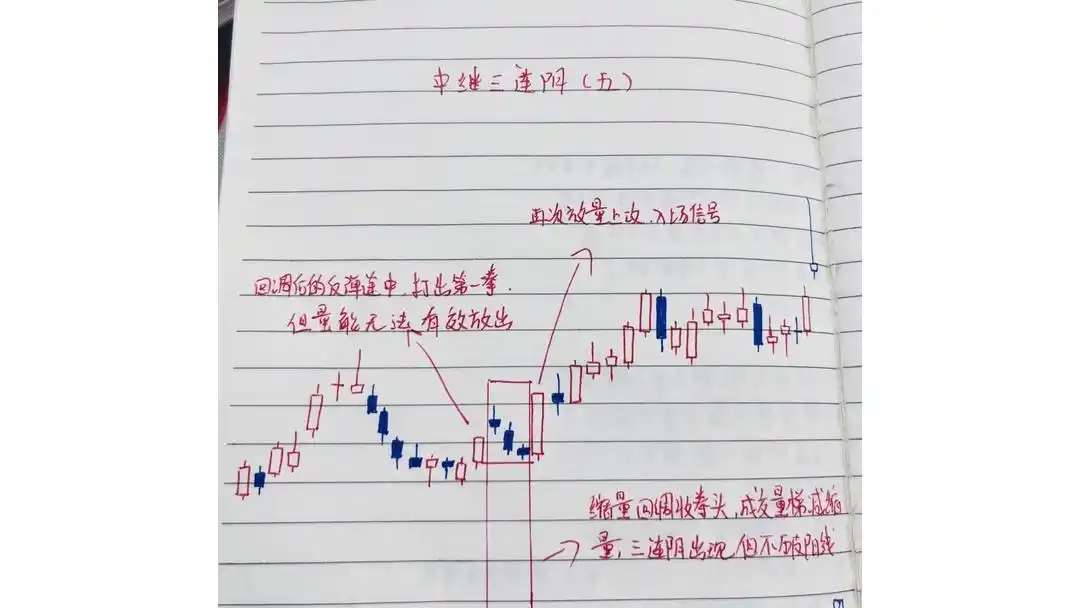 中继三连阴（五）
再次放量上攻，入场信号
回调后的反弹途中，打出第一拳，
但量能无法有效放出
缩量回调收拳头，成交量梯减缩
量，三连阴出现，但不破阳线